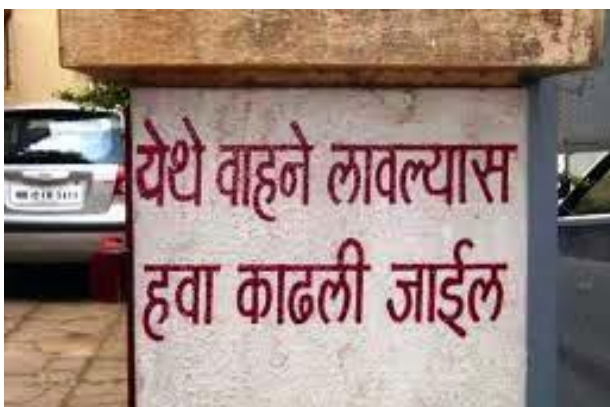 येथे वाहने लावल्यास
हवा काढली जाईल